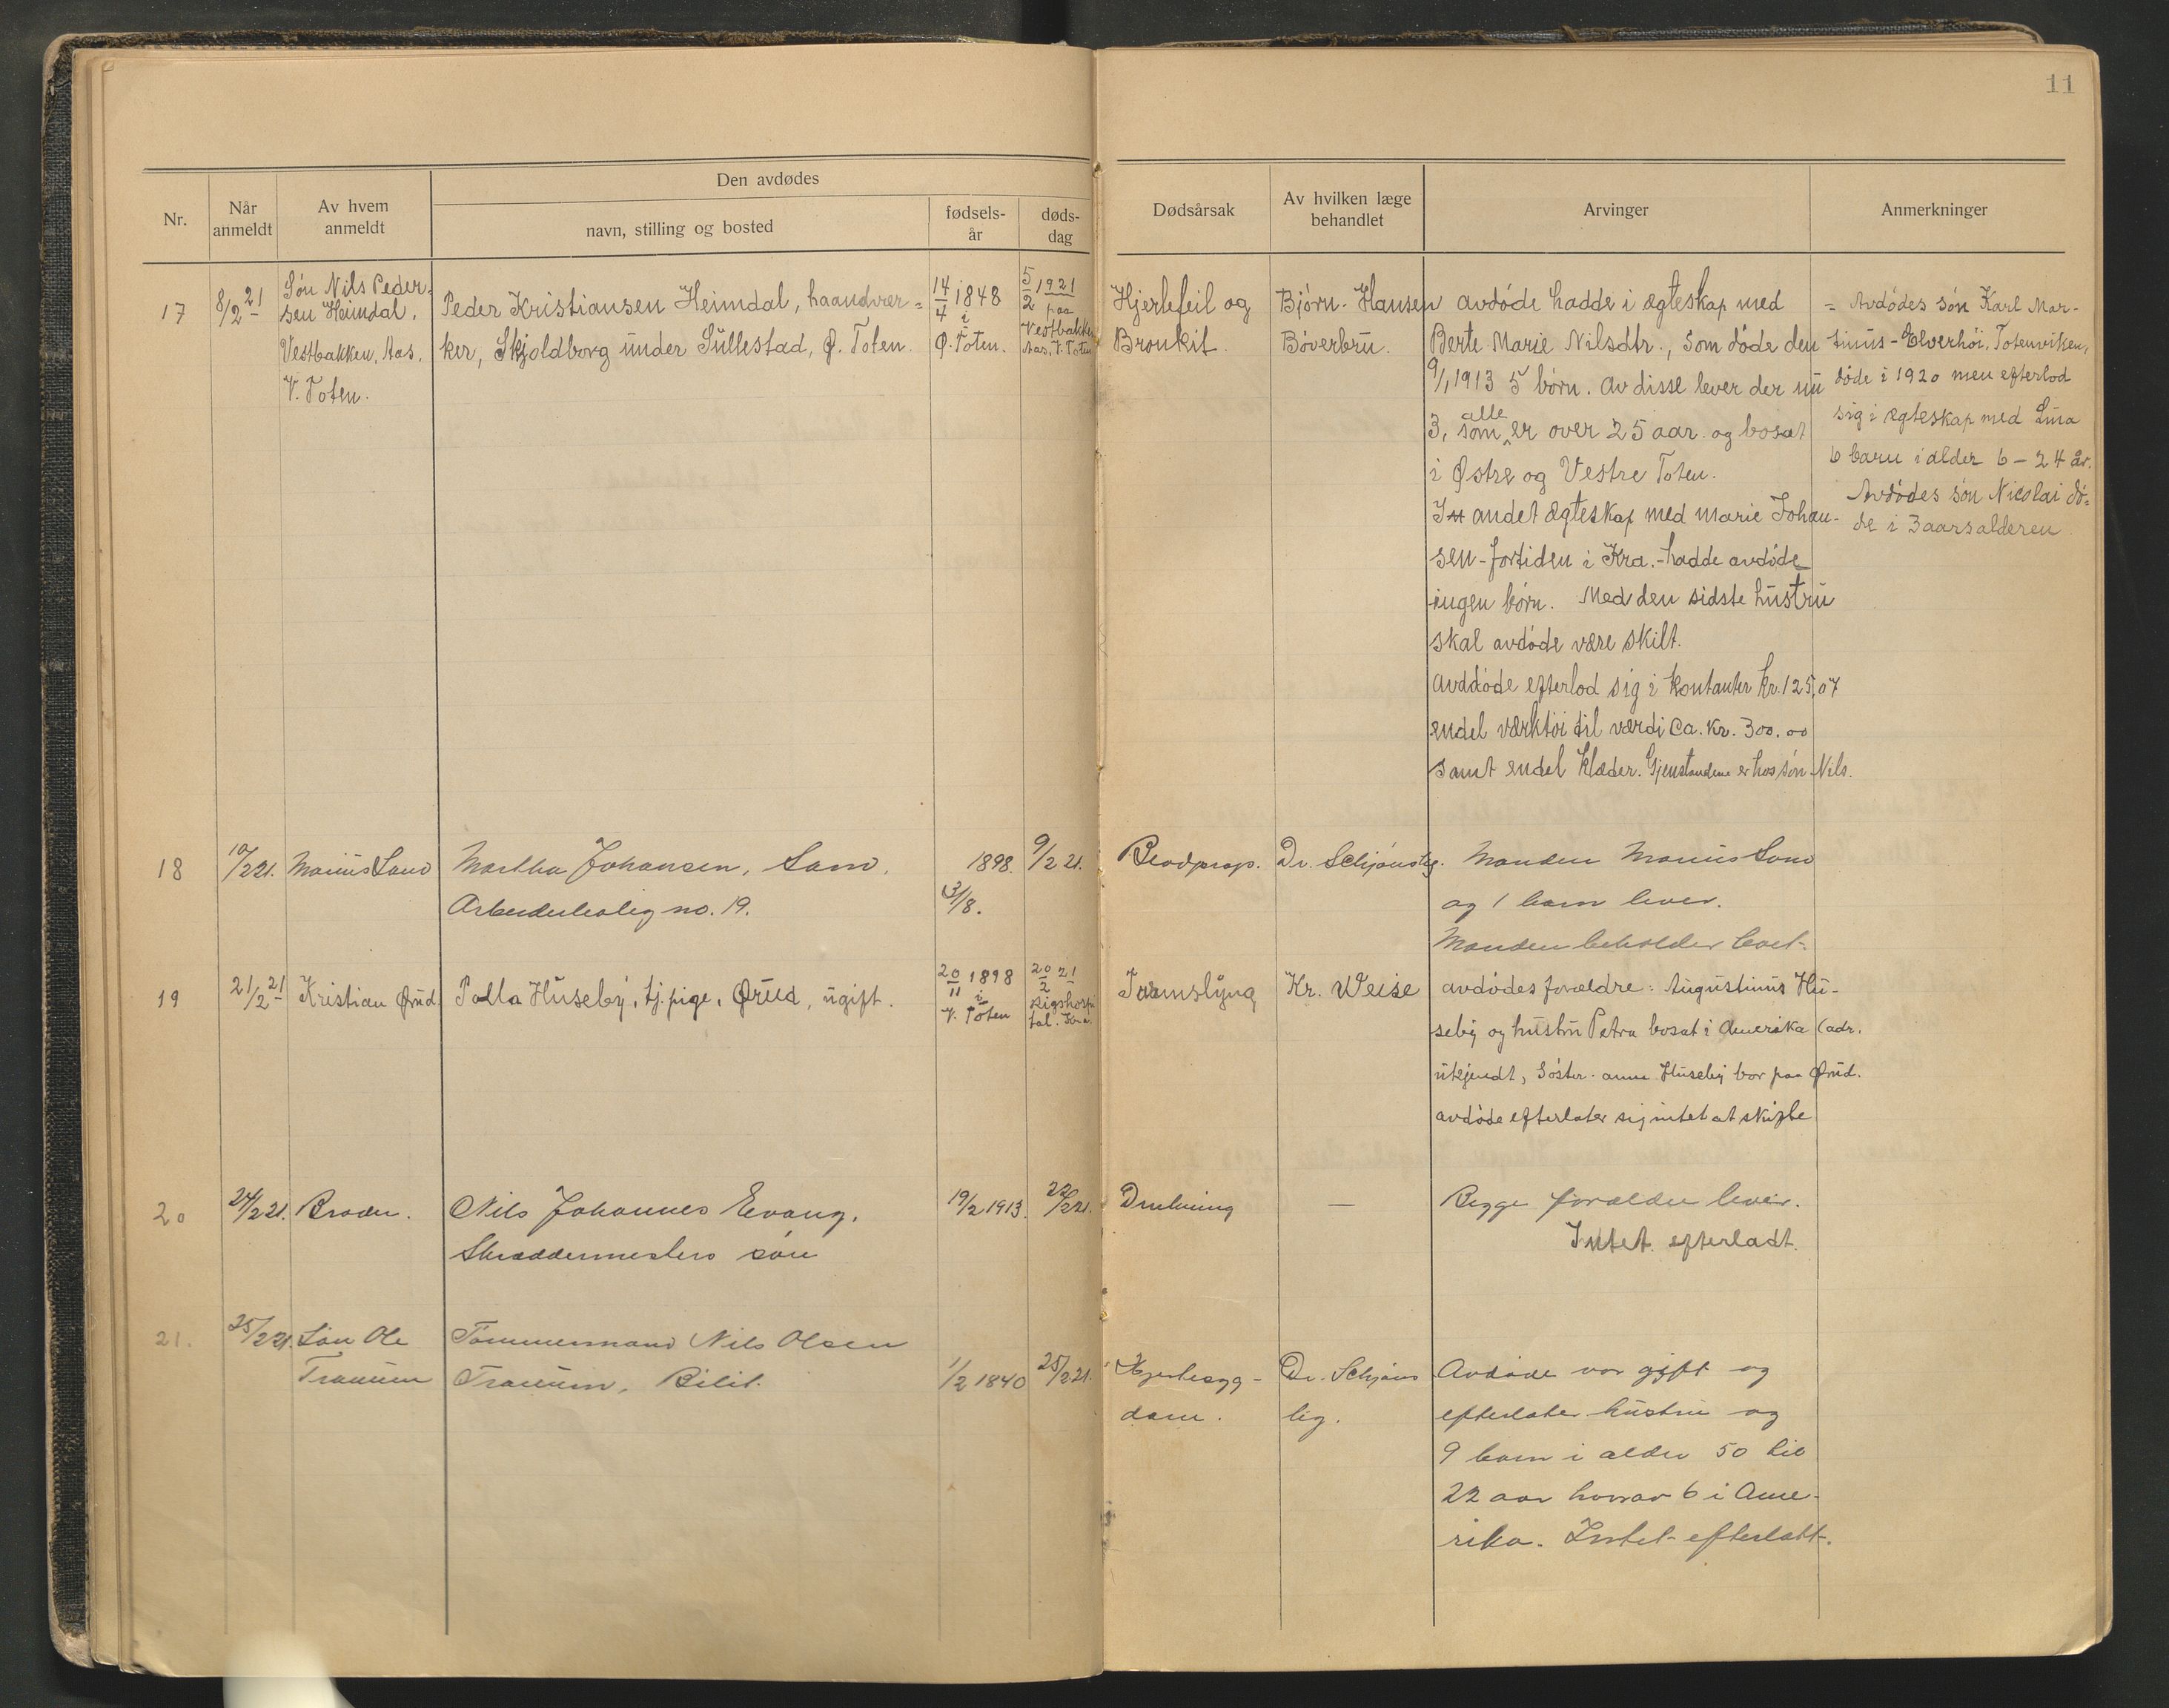 11
Nr.
Når anmeldt
Av hvem anmeldt
Den avdødes
navn, stilling og bosted
fødsels-år
døds-dag
Dødsårsak
Av hvilken læge behandlet
Arvinger
Anmerkninger
17
8/2 21
Søn Nils Peder-
sen Heimdal,
Vestbakken, Aas,
V. Toten.
Peder Kristiansen Heimdal, haandver=
ker, Skjoldborg under Sullestad, Ø. Toten.
14/4 1848
i
Ø. Toten.
5/2 1921
paa
Vestbakken
Aas, V. Toten
Hjertefeil og
Bronkit.
Bjørn-Hansen
Bøverbru.
Avdøde hadde i ægteskap med
Berte Marie Nilsdtr., som døde den
9/1 1913 5 børn. Av disse lever der nu
3, som alle er over 25 aar og bosat
i Østre og Vestre Toten.
I andet ægteskap med Marie Johan-
sen - fortiden i Kra. - hadde avdøde
ingen børn. Med den sidste hustru
skal avdøde være skilt.
Avddøde efterlod sig i kontanter kr. 125,07
endel værktøi til værdi ca. kr. 300.00
samt endel klæder. Gjenstandene er hos søn Nils.
= Avdødes søn Karl Mar-
tinus - Elverhøi, Totenviken,
døde i 1920 men efterlod
sig i ægteskap med Lina
6 barn i alder 6 - 24 år.
Avdødes søn Nicolai dø-
de i 3 aarsalderen
18
10/2 21.
Marius Sand
Martha Johansen, Sand,
Arbeiderbolig no. 19.
1898.
31/8.
9/2 21.
Blodprop.
Dr. Schjønsbg.
Manden Marius Sand
og 1 barn lever.
Manden beholder boet.
19
21/2 21
Kristian Ørud
Palla Huseby, tj.pige, Ørud, ugift.
20/11 1898
i
V. Toten
20/2 21
Rigshospi
tal. Kra.
Tarmslyng
Kr. Weise
avdødes forældre: Augustinus Hu-
seby og hustru Petra bosat i Amerika (adr.
utkjendt, Søster Anne Huseby bor paa Ørud.
avdøde efterlater sig intet at skifte
20
24/2 21.
Broder.
Nils Johannes Evang,
Skræddermesters søn
19/2 1913.
22/2 21.
Drukning
—
Begge forældre lever.
Intet efterladt.
21.
25/2 21.
Søn Ole
Tranum
Tømmermand Nils Olsen
Tranum, Bilit.
1/2 1840
25/2 21.
Hjertesyg-
dom.
Dr. Schjøns
bg.
Avdøde var gift og
efterlater hustru og
9 barn i alder 50 til
22 aar hvorav 6 i Ame-
rika. Intet efterlatt.